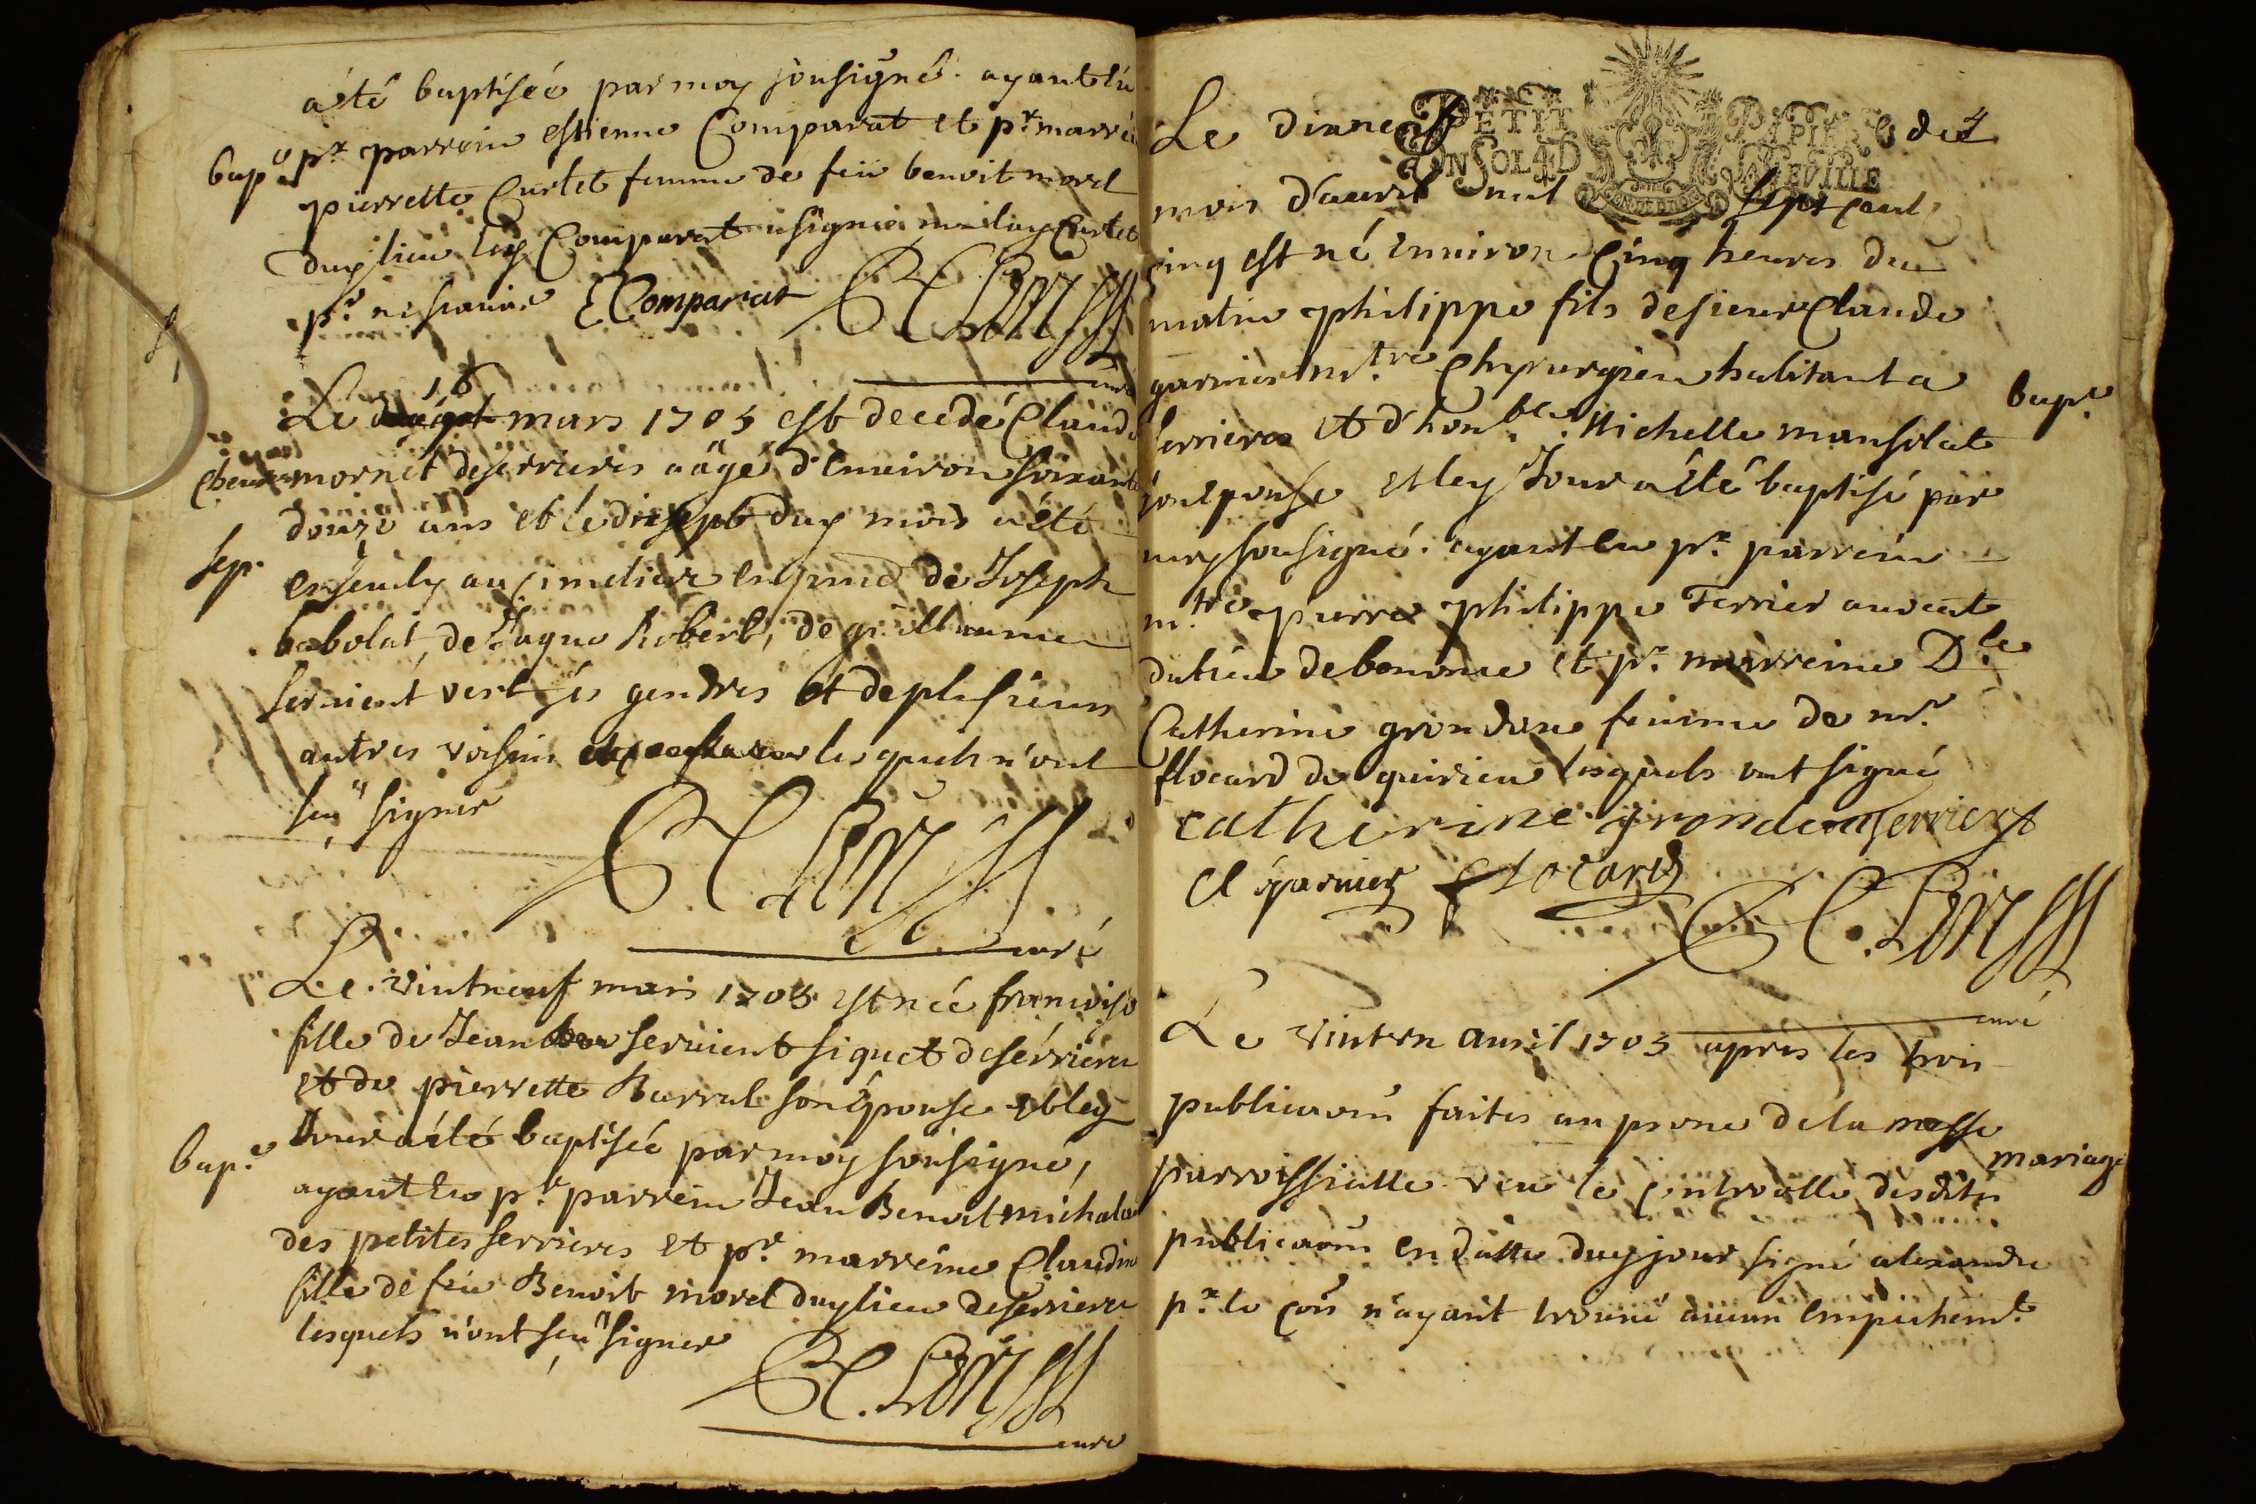 a été baptisée par moy sousigné. ayant eü
bap.e pr. parrein estienne Comparat et pr. marreine
pierrette Curtet femme de feü benoit morel
duy lieu ley Comparat a signé non la Curtet
pr. ne scavoir E Comparat
curé
Le 16 mars 1705 est decedé Claude
mornet deserrieres aägé d'enuiron soixante
douze ans et le disept duy mois a été
sep.
enseuely au cimetiere en pnce de Joseph
babolat, de Jaque Robert, de guillaume
seruient vert ses gendres et de plusieurs
autres voisins lesquels n'ont
seu signer
curé
Le vintneuf mars 1705 est née francoise
fille de Jean seruient siquet deserrieres
et de pierrette Barral son épouse et ley
bap.e Jour a été baptisée par moy sousigné,
ayant eu pr. parrein Jean Benoit michalat
des petites serrieres et pr. marreine Claudine
fille de feu Benoit morel duy lieu deserrieres
lesquels n'ont seu signer
curé
PETIT PAPIER
UN SOL 4 D LA FEVILLE
Le dixneuf du
mois d'auril mil sept cent
cinq est né enuiron cinq heures du
matin philippe fils de sieur Claude
garnier m.tre Chyrurgien habitant a
bap.e
serrieres et d'hon.ble Michelle mansolat
son epouse et ley Jour a été baptisé par
moy sousigné. ayant eu pr. parrein
m.tre pierre philippe Ferrier aucat
du lieu de bonnme et pr. marreine D.le
Catherine grondone femme de mr.
flocard de quirieu lesquels ont signé
catherine gronde ferrier
Cl garnier flocard
curé
Le vintvn auril 1705 apres les trois
publicaons faites au prone de la messe
mariage
parroissialle veu le interualle desdites
publicaons en datte duy jour signé alexandre
pr. le con n'ayant trouué aucun empechem.t